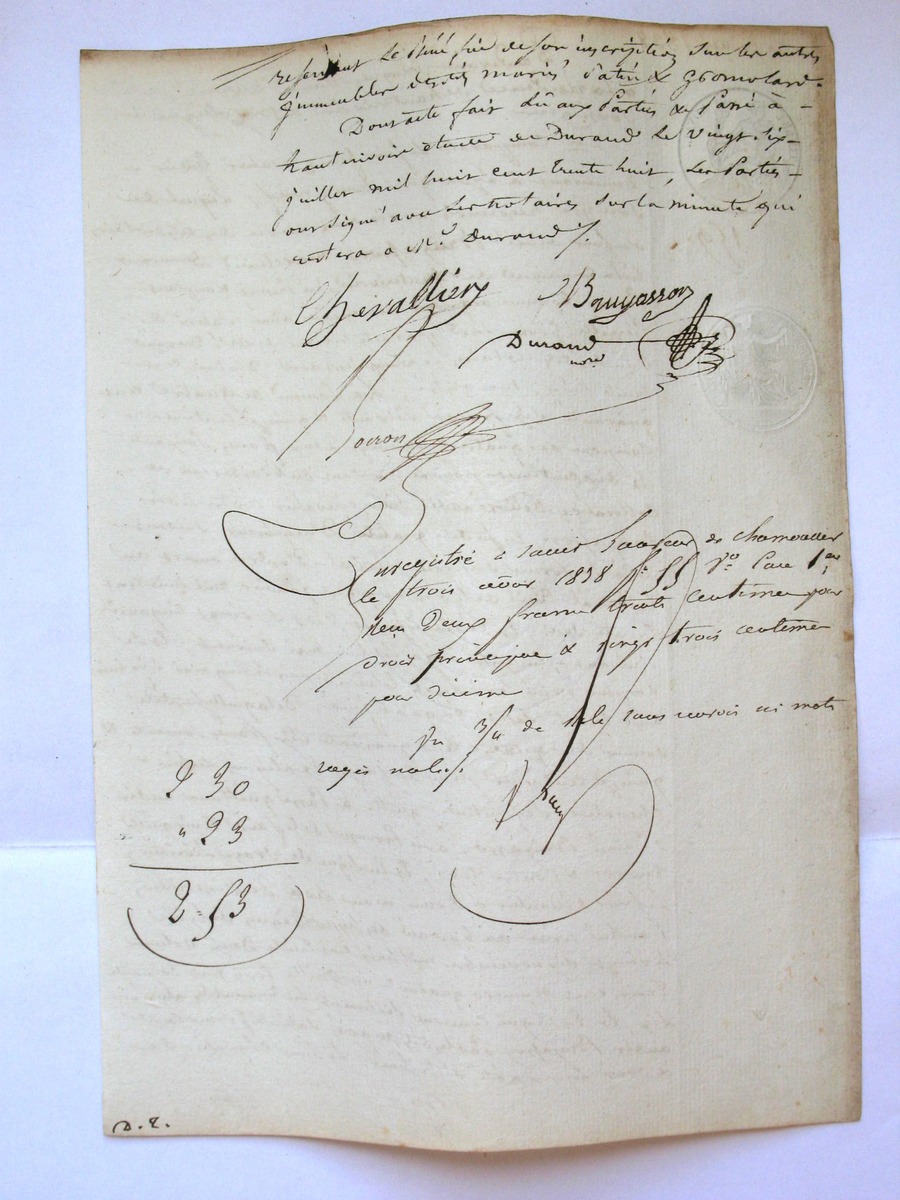 réservant le bénéfice de son inscription sur les autres
immeubles desdits mariés Patin & Gromolard.
Dont acte fait lû aux Parties & Passé à -
hauterivoire étude de Durand le vingt-six -
juillet mil huit cent trente huit, les Parties -
ont signé avec les notaires sur la minute qui
restera à Me. Durand /.
Chevallier Bruyasson
Durand
nore
enregistré à saint de
le trois août 1838 fo 55 vo Case 1ere
reçu Deux francs trente centimes pour
droit principal & vingt trois centimes
pour dixième
un 3/4 de sans avoir mots
rayés nuls /.
2 30
" 23
2 = 53
D. 2.